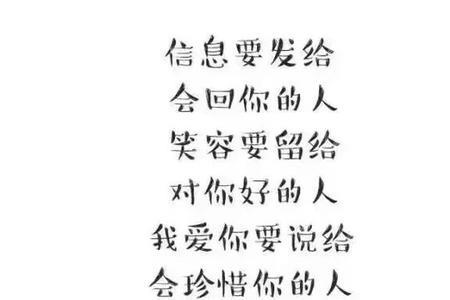 信息要发给
会回你的人
笑容要留给
对你好的人
我爱你要说给
会珍惜你的人